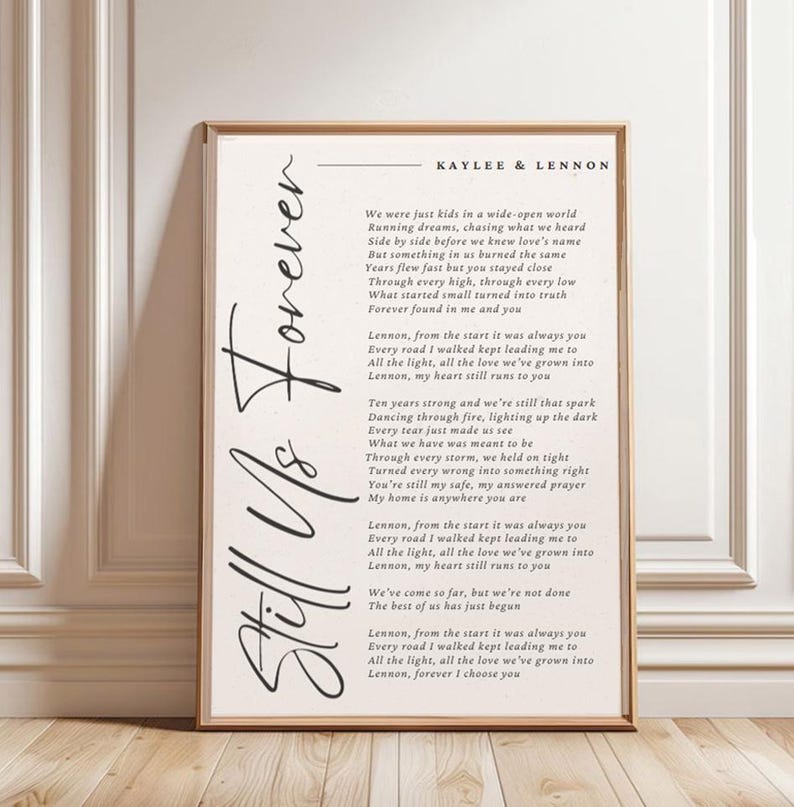 Still Us Forever
KAYLEE & LENNON
We were just kids in a wide-open world
Running dreams, chasing what we heard
Side by side before we knew love's name
But something in us burned the same
Years flew fast but you stayed close
Through every high, through every low
What started small turned into truth
Forever found in me and you
Lennon, from the start it was always you
Every road I walked kept leading me to
All the light, all the love we've grown into
Lennon, my heart still runs to you
Ten years strong and we're still that spark
Dancing through fire, lighting up the dark
Every tear just made us see
What we have was meant to be
Through every storm, we held on tight
Turned every wrong into something right
You're still my safe, my answered prayer
My home is anywhere you are
Lennon, from the start it was always you
Every road I walked kept leading me to
All the light, all the love we've grown into
Lennon, my heart still runs to you
We've come so far, but we're not done
The best of us has just begun
Lennon, from the start it was always you
Every road I walked kept leading me to
All the light, all the love we've grown into
Lennon, forever I choose you